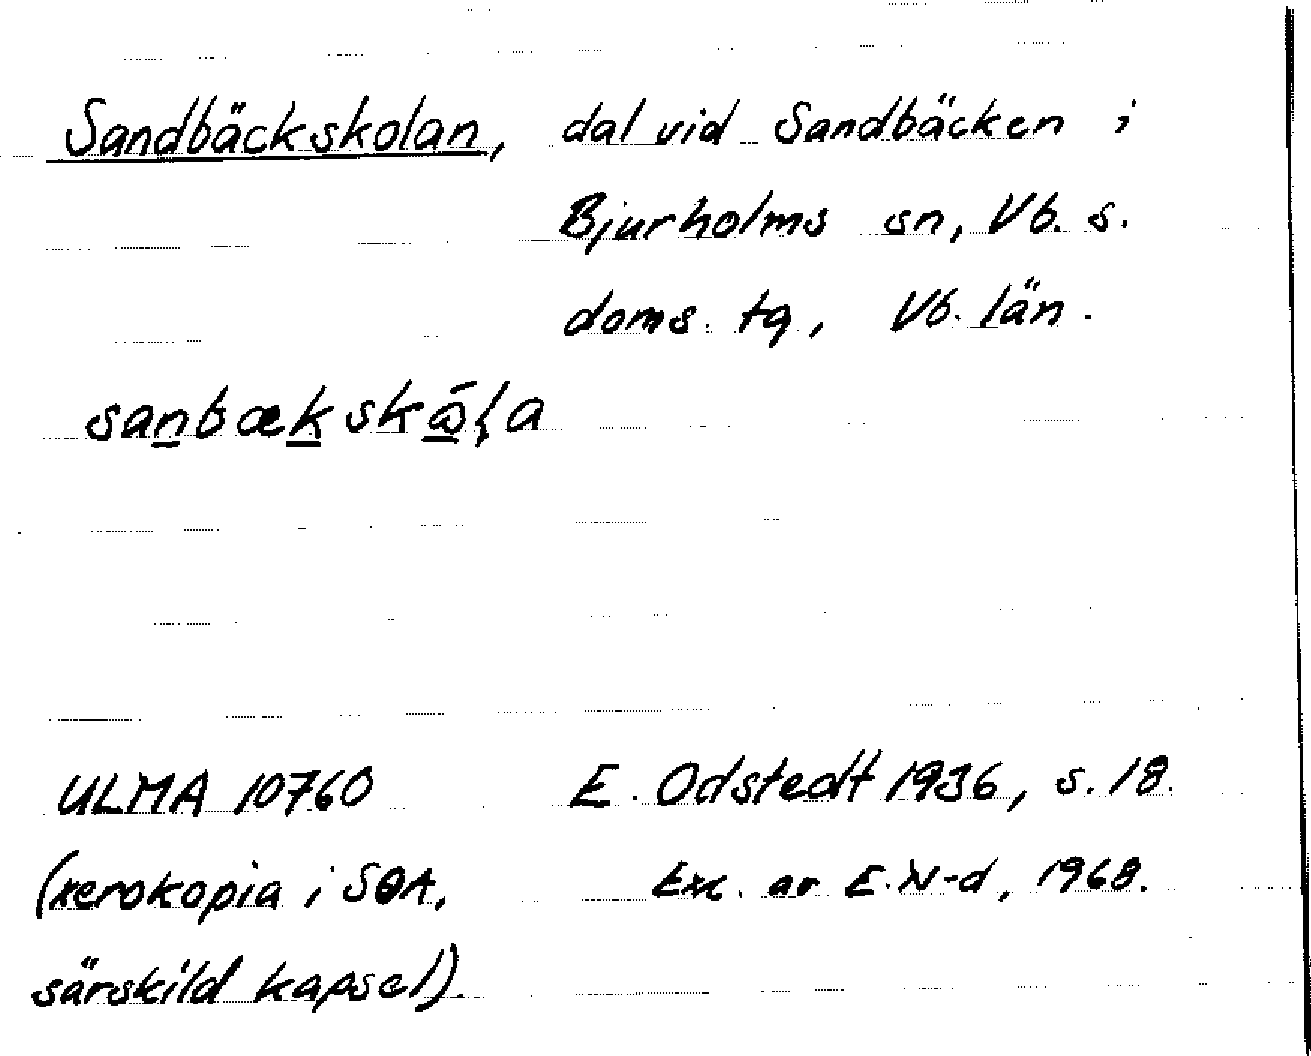 Sandbäckskolan, dal vid Sandbäcken i
Bjurholms sn, Vb. s.
doms. tg, Vb. län.
sanbækskåla
ULMA 10760 E. Odstedt 1936, s. 18.
(xerokopia i SOA, Exc. av E. N-d, 1968.
särskild kapsel).